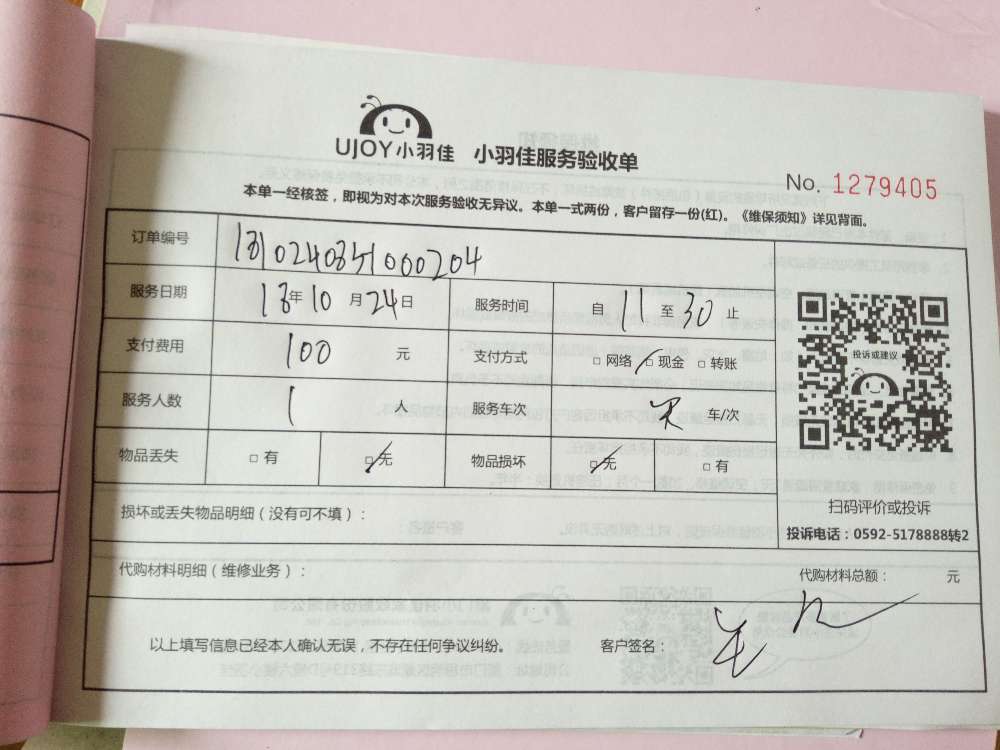 UJOY小羽佳 小羽佳服务验收单
No. 1279405
本单一经核签，即视为对本次服务验收无异议。本单一式两份，客户留存一份(红)。《维保须知》详见背面。
订单编号
服务日期 18年10月24日 服务时间 自11至30止
支付费用 100 元 支付方式 □网络 □现金 □转账
服务人数 1 人 服务车次 车/次
物品丢失 □有 □无 物品损坏 □无 □有
投诉或建议
扫码评价或投诉
投诉电话：0592-5178888转2
损坏或丢失物品明细（没有可不填）：
代购材料明细（维修业务）： 代购材料总额： 元
以上填写信息已经本人确认无误，不存在任何争议纠纷。 客户签名：